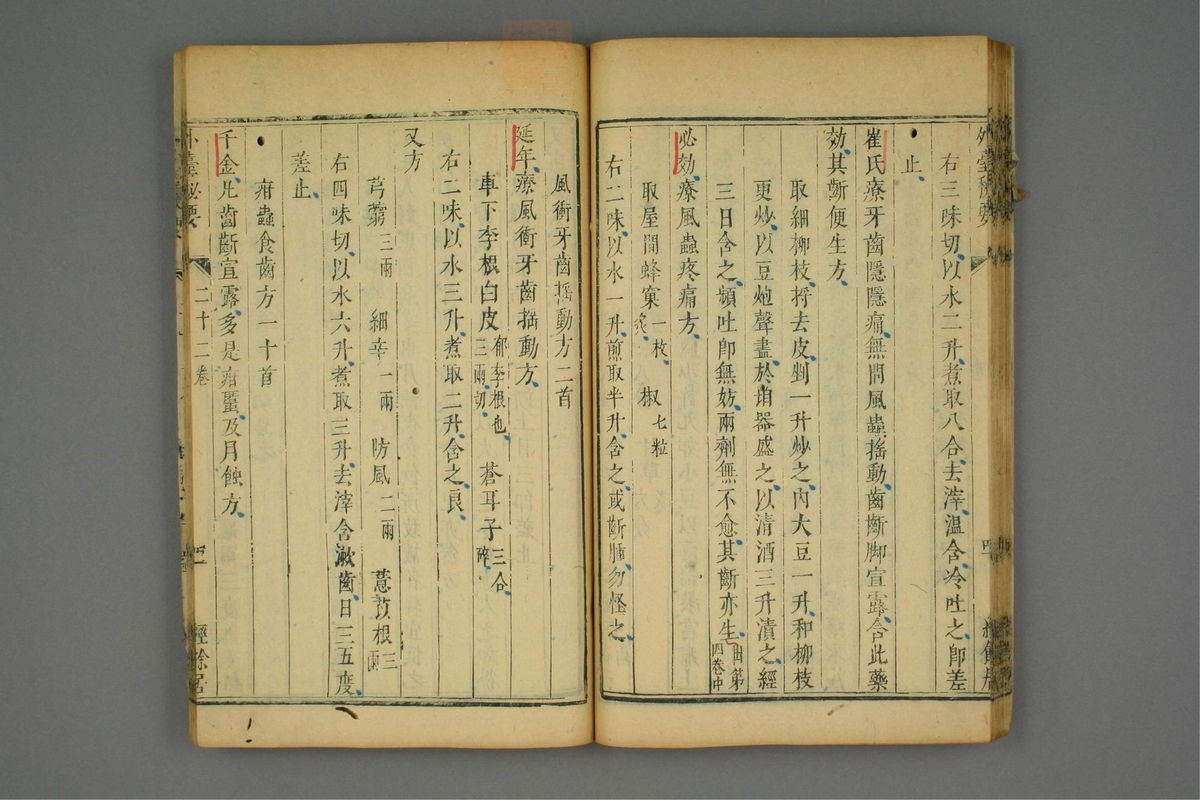 外臺秘要
右三味切以水二升煮取八合去滓溫含冷吐之即差
止
崔氏療牙齒隱隱痛無問風蟲搖動齒齗脚宣露含此藥
効其齗便生方
取細柳枝捋去皮剉一升炒之內大豆一升和柳枝
更炒以豆炮聲盡於垍器盛之以清酒三升漬之經
三日含之頻吐即無妨兩劑無不愈其齗亦生出第四卷中
必効療風蟲疼痛方
取屋間蜂窠一枚炙 椒七粒
右二味以水一升煎取半升含之或齗腫勿怪之
風衝牙齒搖動方二首
延年療風衝牙齒搖動方
車下李根白皮三兩切郁李根也 蒼耳子三合碎
右二味以水三升煮取二升含之良
又方
芎藭三兩 細辛一兩 防風二兩 薏苡根三兩
右四味切以水六升煮取三升去滓含漱齒日三五度
差止
疳蟲食齒方一十首
千金凡齒齗宣露多是疳䘌及月蝕方
外臺秘要 二十二卷 經餘居